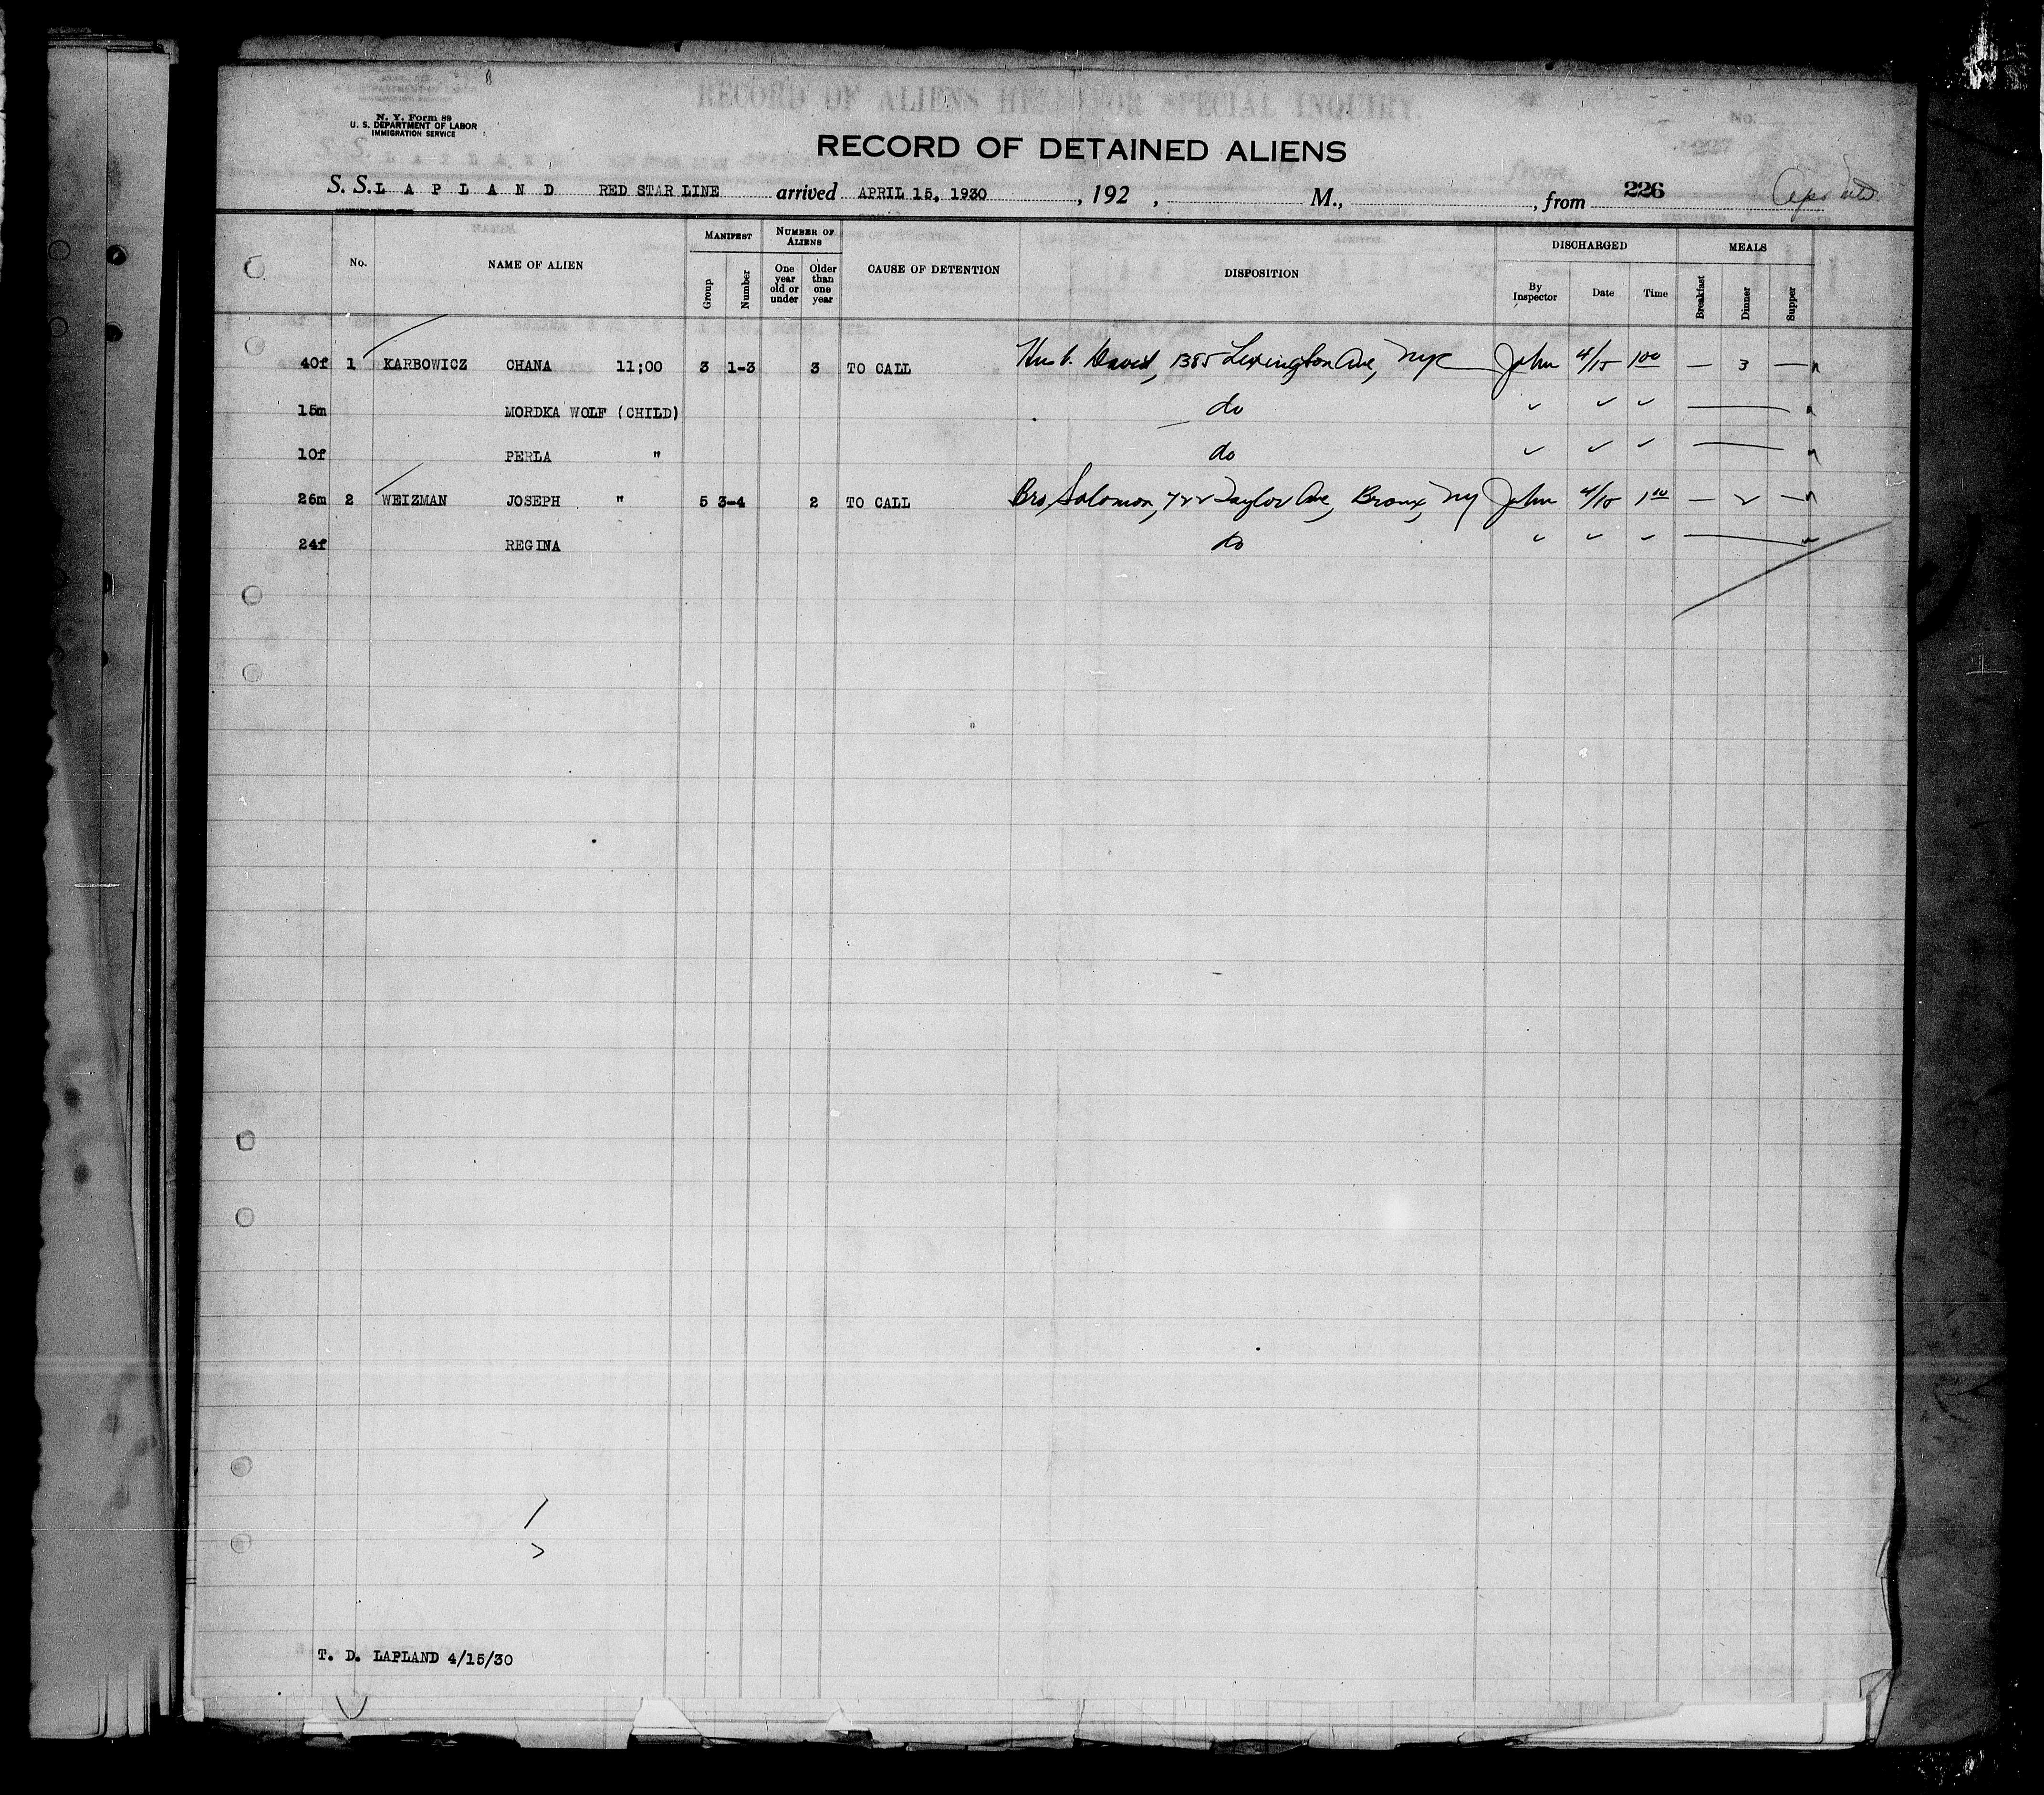 RECORD OF ALIENS HELD FOR SPECIAL INQUIRY.
N. Y. Form 89
U. S. DEPARTMENT OF LABOR
IMMIGRATION SERVICE
No.
227
RECORD OF DETAINED ALIENS
S. S. L A P L A N D RED STAR LINE arrived APRIL 15, 1930, 192 , M., , from 226
No. NAME OF ALIEN MANIFEST Group Number NUMBER OF ALIENS One year old or under Older than one year CAUSE OF DETENTION DISPOSITION DISCHARGED By Inspector Date Time MEALS Breakfast Dinner Supper
40f 1 KARBOWICZ CHANA 11;00 3 1-3 3 TO CALL Husb. David, 1385 Lexington Ave, NYC John 4/15 1 00 — 3 —
15m MORDKA WOLF (CHILD) do ✓ ✓ ✓ —
10f PERLA " do ✓ ✓ ✓ —
26m 2 WEIZMAN JOSEPH " 5 3-4 2 TO CALL Bro, Solomon, 722 Taylor Ave, Bronx, NY John 4/15 1 00 — 2 —
24f REGINA do ✓ ✓ ✓ —
T. D. LAPLAND 4/15/30